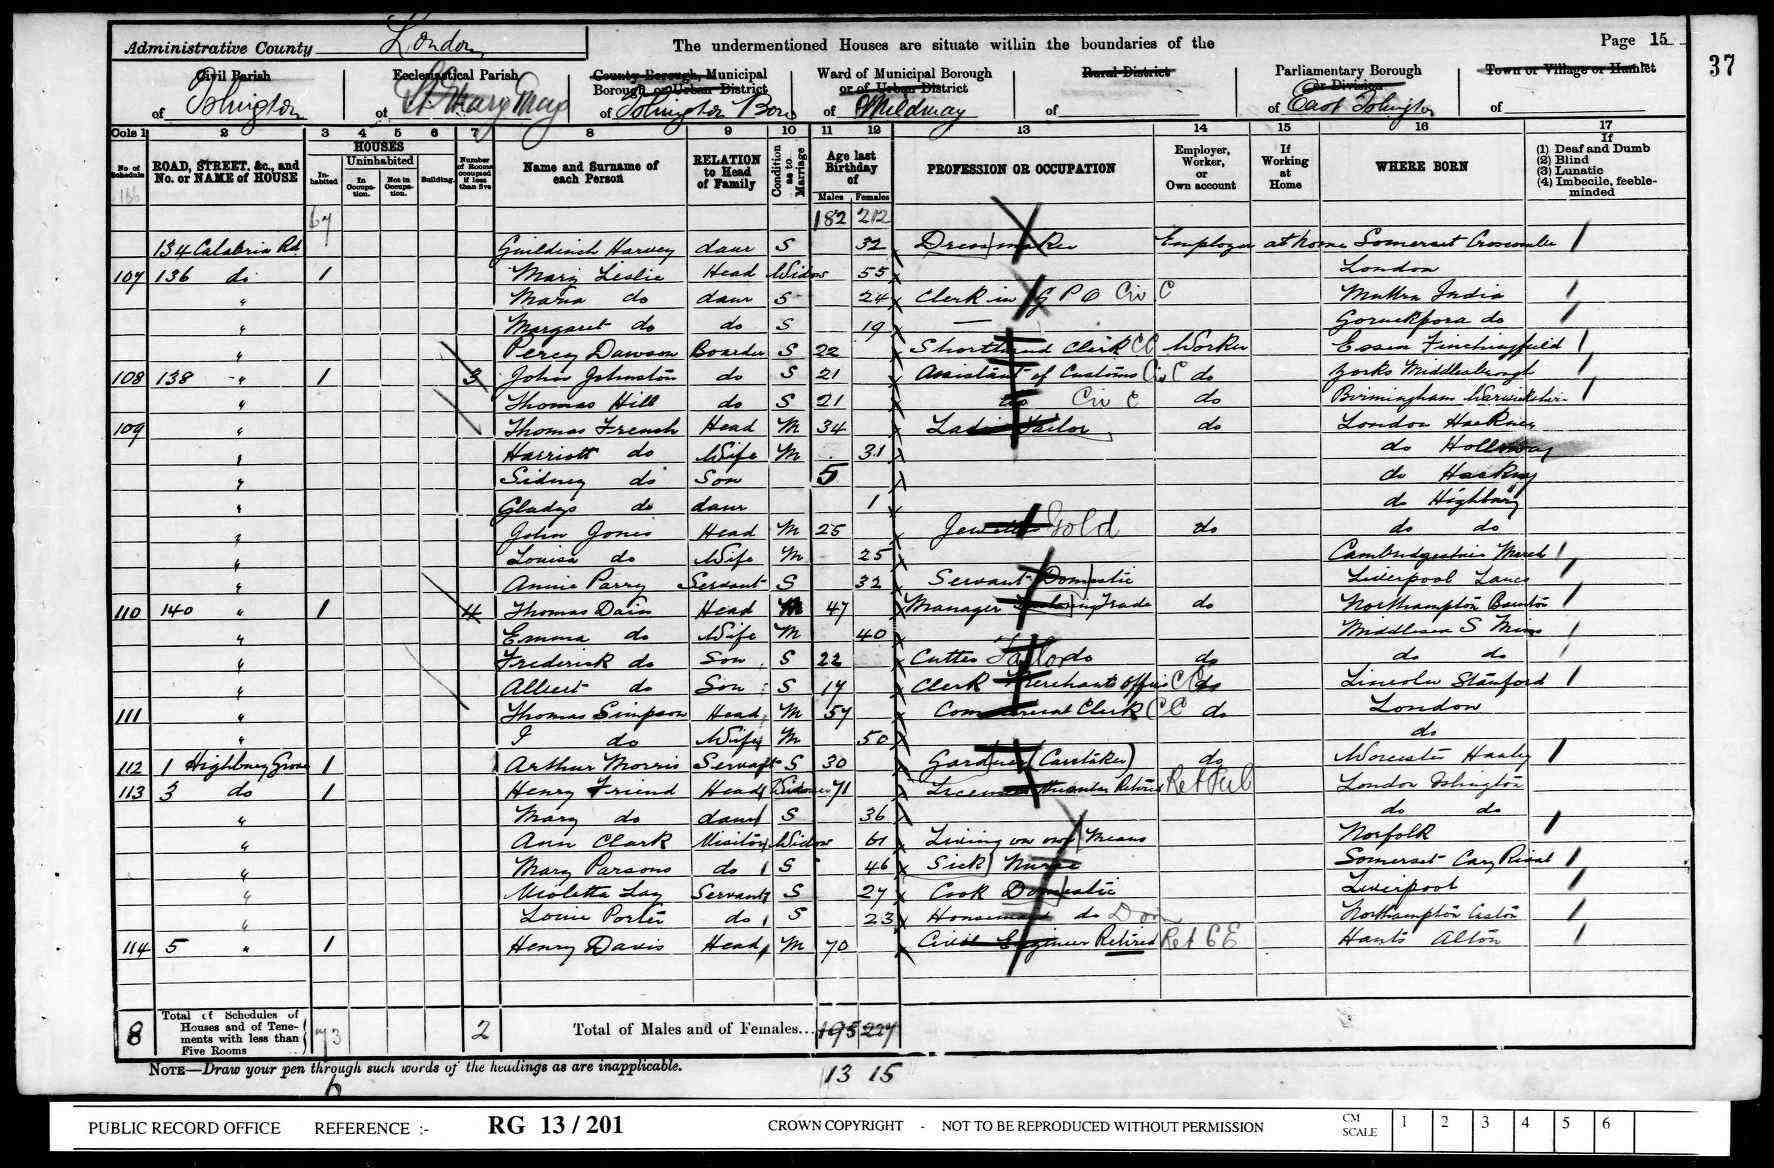 Administrative County London
The undermentioned Houses are situate within the boundaries of the
Page 15
37
Civil Parish of Islington
Ecclesiastical Parish of St. Mary Mag
County Borough, Municipal Borough or Urban District of Islington Boro
Ward of Municipal Borough or of Urban District of Mildmay
Rural District of
Parliamentary Borough or Division of East Islington
Town or Village or Hamlet of
Cols 1 2 3 4 5 6 7 8 9 10 11 12 13 14 15 16 17
No. of Schedule
ROAD, STREET, &c., and No. or NAME of HOUSE
HOUSES
Inhabited
Uninhabited
In Occupation.
Not in Occupation.
Building.
Number of Rooms occupied if less than five
Name and Surname of each Person
RELATION to Head of Family
Condition as to Marriage
Age last Birthday of
Males Females
PROFESSION OR OCCUPATION
Employer, Worker, or Own account
If Working at Home
WHERE BORN
If (1) Deaf and Dumb (2) Blind (3) Lunatic (4) Imbecile, feeble-minded
67 182 212
134 Calabria Rd Harvey daur S 32 Dressmaker Employer at home Somerset Croscombe
107 136 do 1 Mary Leslie Head Widow 55 London
" Maria do daur S 24 Clerk in G P O Civ C Muttra India
" Margaret do do S 19 — do
" Percy Dawson Boarder S 22 Shorthand Clerk CC Worker Essex Finchingfield
108 138 " 1 3 John Johnston do S 21 Assistant of Customs Civ C do Yorks Middlesbrough
" Thomas Hill do S 21 do Civ C do Birmingham Warwickshire
109 " Thomas French Head M 34 Ladies Tailor do London Hackney
" Harriott do Wife M 31 do Holloway
" Sidney do Son 5 do Hackney
" Gladys do daur 1 do Highbury
" John Jones Head M 25 Jeweller Gold do do do
" Louisa do Wife M 25 Cambridgeshire March
" Annie Parry Servant S 32 Servant Domestic Liverpool Lancs
110 140 " 1 4 Thomas Dain Head M 47 Manager Tailoring Trade do Northampton
" Emma do Wife M 40 Middlesex S Mims
" Frederick do Son S 22 Cutter Tailor do do do do
" Albert do Son S 17 Clerk Merchants Office CC do Lincoln Stamford
111 " Thomas Simpson Head M 57 Commercial Clerk CC do London
" I do Wife M 50 do
112 1 Highbury Grove 1 Arthur Morris Servant S 30 Gardener (Caretaker) do Worcester Hanley
113 3 do 1 Henry Friend Head Widower 71 Licensed Victualler Retired Ret Pub London Islington
" Mary do daur S 36 do do
" Ann Clark Visitor Widow 61 Living on own Means Norfolk
" Mary Parsons do S 46 Sick Nurse Somerset Cary Rival
" Violetta Lay Servant S 27 Cook Domestic Liverpool
" Louie Porter do S 23 Housemaid do Dom Northampton
114 5 " 1 Henry Davis Head M 70 Civil Engineer Retired Ret CE Hants Alton
8 Total of Schedules of Houses and of Tenements with less than Five Rooms 73 2 Total of Males and of Females... 195 227
NOTE—Draw your pen through such words of the headings as are inapplicable.
6 13 15
PUBLIC RECORD OFFICE REFERENCE :- RG 13 / 201 CROWN COPYRIGHT - NOT TO BE REPRODUCED WITHOUT PERMISSION CM SCALE 1 2 3 4 5 6